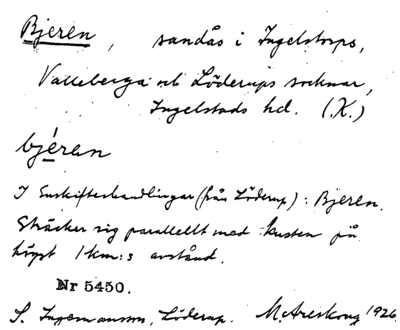 Bjeren, sandås i Ingelstorps,
Valleberga och Löderups socknar,
Ingelstads hd. (K.)
bjéran
I Enskifteshandlingar (från Löderup): Bjeren.
Sträcker sig parallellt med kusten på
högst 1 km:s avstånd.
Nr 5450.
S. Ingemansson, Löderup. M. Areskoug 1926